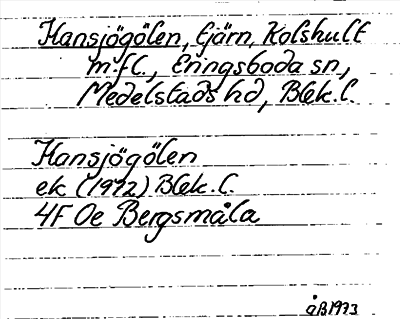 Hansjögölen, tjärn, Kolshult
m.fl., Eringsboda sn,
Medelstads hd, Blek.l.
Hansjögölen
ek (1972) Blek.l.
4F 0e Bergsmåla
ÅB1973